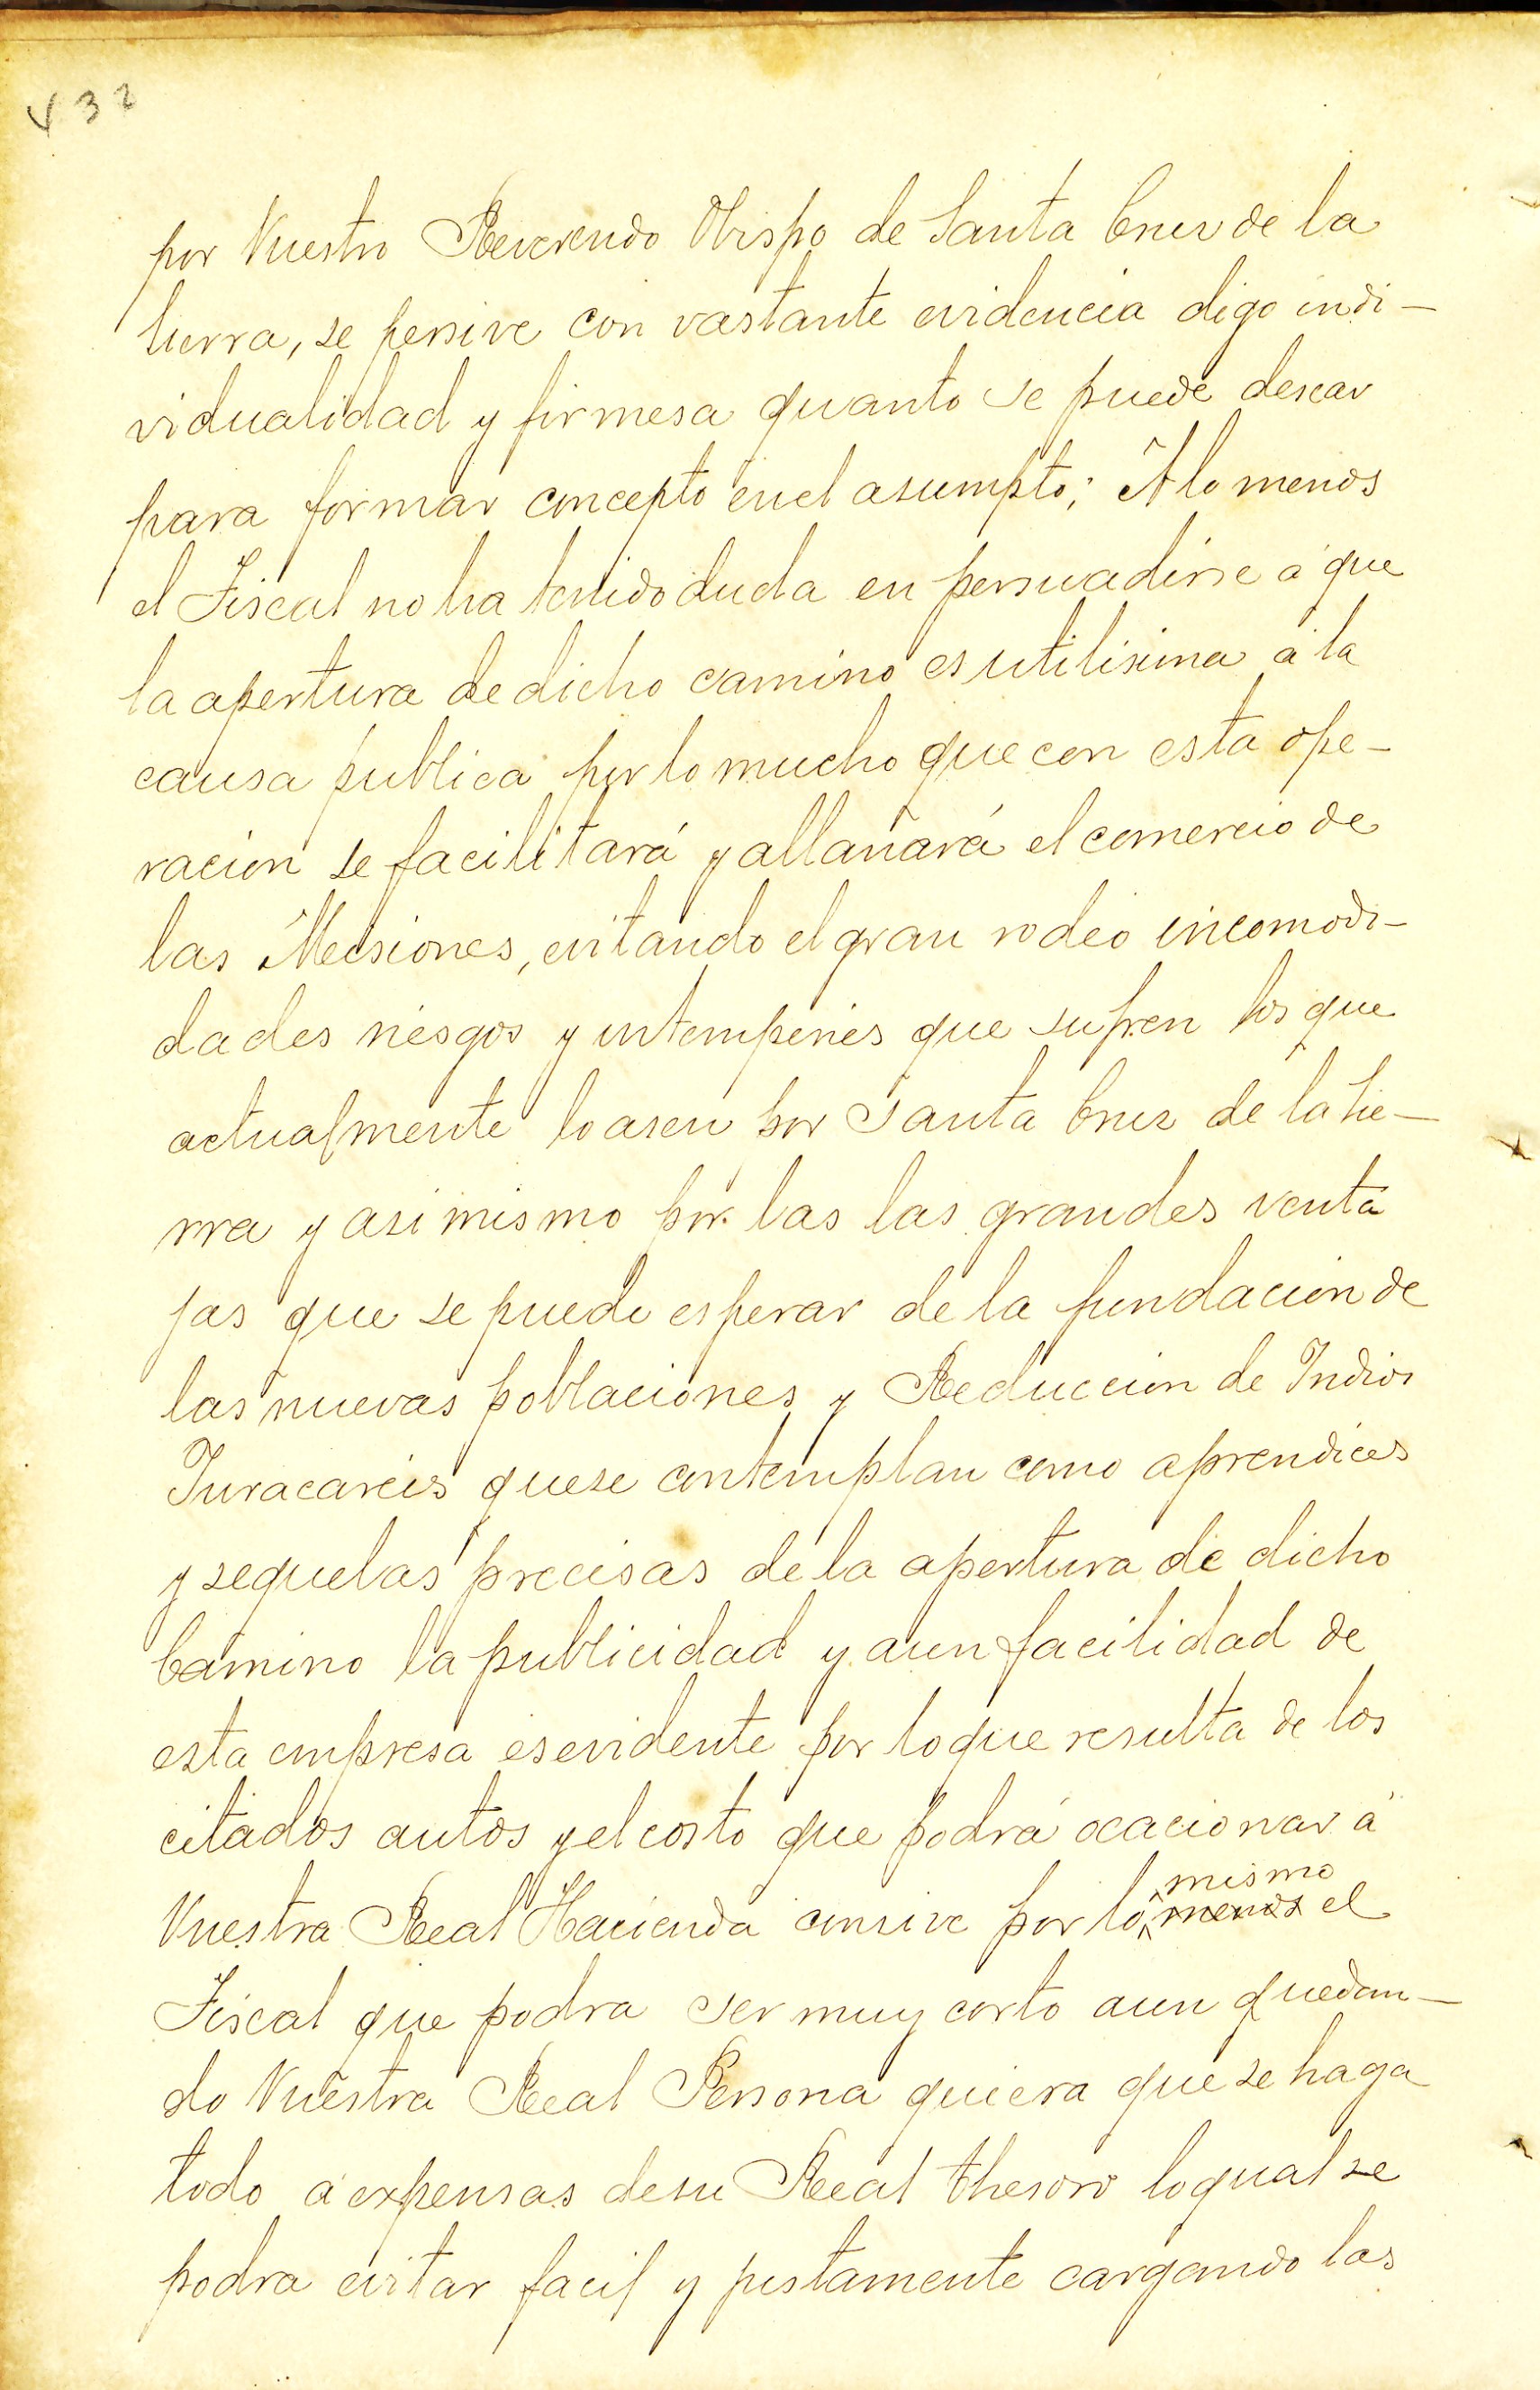 432
por Vuestro Reverendo Obispo de Santa Cruz de la
tierra, se persive con vastante evidencia digo indi-
vidualidad y firmesa quanto se puede desear
para formar concepto en el asumpto; A lo menos
el Fiscal no ha tenido duda en persuadirse á que
la apertura de dicho camino es utilisima á la
causa publica por lo mucho que con esta ope-
racion se facilitará y allanará el comercio de
las Micsiones, evitando el gran rodeo incomodi-
dades riesgos y intemperies que sufren los que
actualmente lo asen por Santa Cruz de la tie-
rra y asi mismo por las las grandes venta
jas que se puede esperar de la fundacion de
las nuevas poblaciones y Reduccion de Indios
Yuracarees que se contemplan como aprendices
y sequelas precisas de la apertura de dicho
Camino la publicidad y aun facilidad de
esta empresa es evidente por lo que resulta de los
citados autos y el costo que podrá ocacionar á
Vuestra Real Hacienda consive por lo mismo menos el
Fiscal que podra ser muy corto aun quedan-
do Vuestra Real Persona quiera que se haga
todo á expensas de su Real thesoro lo qual se
podra evitar facil y justamente cargando las